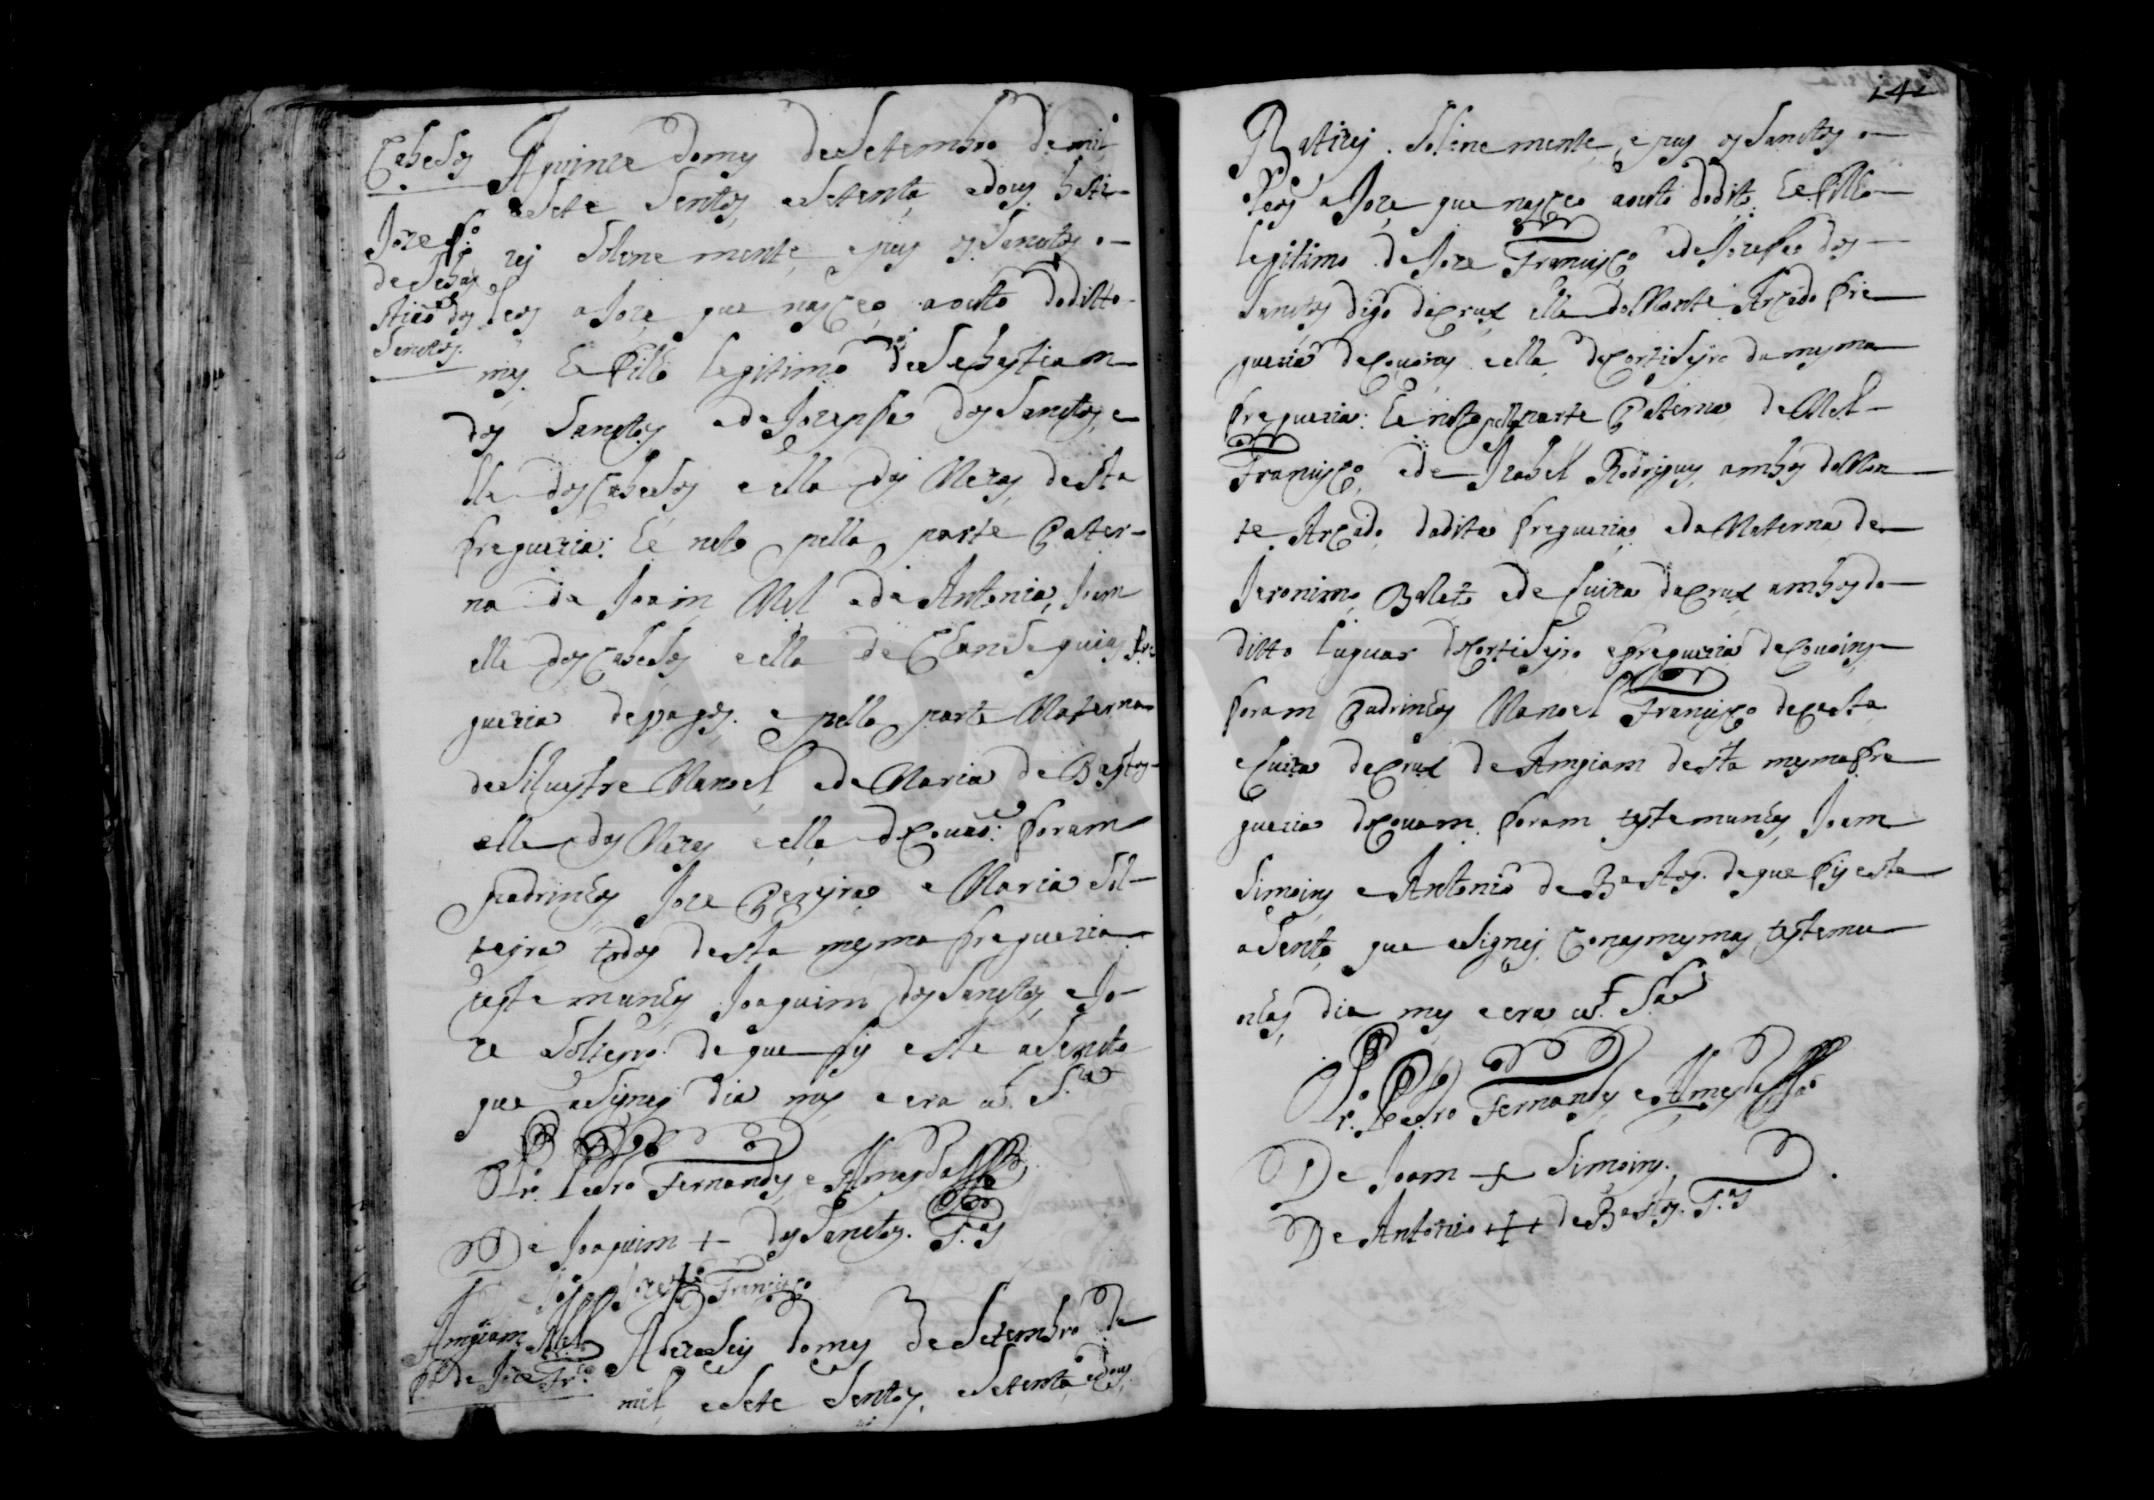 Cabeços
Joze fo
de Sebas
tião dos
Santos
A quinze do mes de Setembro de mil
e Sete Sentos, e Setenta, e dous, bati-
zej Solene mente, e pus os Sanctos o-
leos a Joze, que nasçeo a outo do ditto
mes, he filho legitimo de Sebastiam
dos Sanctos e de Jozepha dos Sanctos, e
lle dos Cabesos e ella das Mezas, desta
freguezia: he neto pella parte Pater-
na de Joam Mel e de Antonia Joam
elle dos Cabesos e ella de
guezia de e pella parte Materna
de Siluestre Manoel, e de Maria de Bastos
elle das Mezas e ella de Couão: foram
padrinhos, Joze Pereyra e Maria Sol-
teyra todos desta mesma freguezia
teste munhas Joaquim dos Sanctos, e Jo-
ze Solteyro. de que fis este aSento
que aSignej dia mes e era ut Sa
O Pe. Pedro Fernandes e Almeyda
De Joaquim + dos Sanctos. Tas
De Joze + Francisco
Amyam Mel
fo de Joze Frco
A dezaSeis do mes de Setembro de
mil, e Sete Sentos, e Setenta e dous,
142
Batizej Solene mente, e pus os Sanctos o-
leos a Joze, que nasçeo a outo do dito: he filho
legitimo de Joze Francisco e de Josefa dos
Sanctos digo da Crux elle do Monte Arcado fre
guezia de Couoins e ella de Cortiseyro da mesma
freguezia: he neto pella parte Paterna de Mel
Francisco, e de Izabel Rodrigues, ambos do Mon
te Arcado, da dita freguezia e da Materna de
Jeronimo, e de Luiza da Crux ambos do
ditto Luguar do Cortiseyro e freguezia de Couoins
foram Padrinhos Manoel Francisco desta
e Luiza da Crux de Amyam desta mesma fre
guezia de Couam. foram testemunhas, Joam
Simoins e Antonio de Bastos. de que fis este
aSento, que aSignej, Con as mesmas testemu
nhas, dia mes e era ut Sa
O Pe. Pedro Fernandes e Almeyda
De Joam + Simoins.
De Antonio + de Bastos. Tas
ADAVR